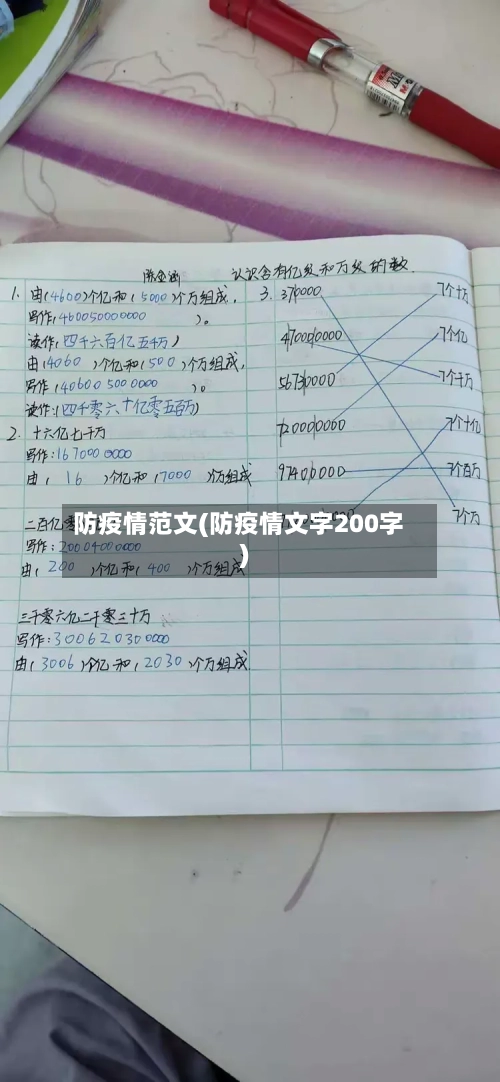 认识含有亿级和万级的数
1. 由(4600)个亿和(5000)个万组成,
写作:460050000000)。
读作:(四千六百亿五千万)
由(4060)个亿和(500)个万组成,
写作(406005000000)。
读作:(四千零六十亿零五百万)
2. 十六亿七千万
写作:1670000000
由(16)个亿和(7000)个万组成
二百亿零
写作:20004000000
由(200)个亿和(400)个万组成
三千零六亿二千零三十万
写作:300620300000
由(3006)个亿和(2030)个万组成
3. 370000
470000000
56730000
720000000
97400000
7个十万
7个亿
7个千万
7个十亿
7个百万
7个万
防疫情范文(防疫情文字200字
)